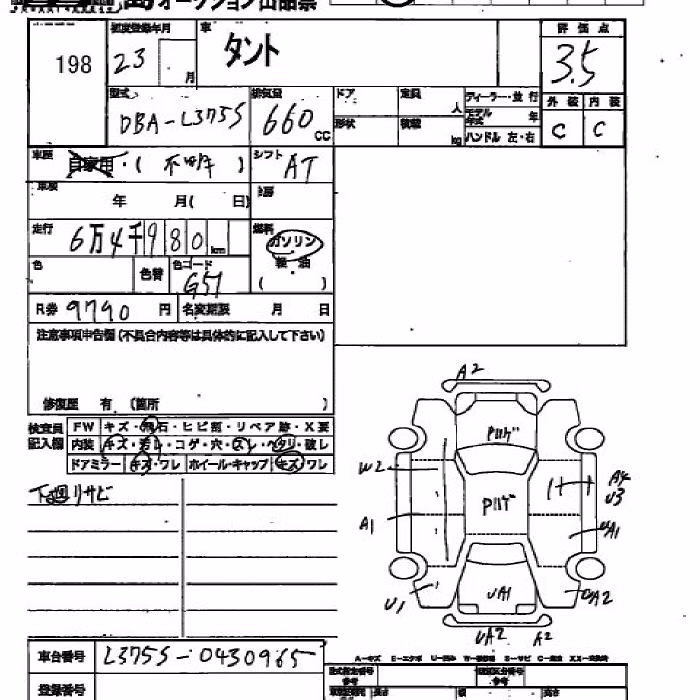 オークション出品票
198
初度登録年月 車 評価点
23 月 タント 3.5
型式 排気量 ドア 定員 人 ディーラー・並行
DBA-L375S 660 cc 形状 積載 kg モデル年式 年
ハンドル 左・右
外装 内装
C C
車歴 自家用・( 不明 ) シフト AT
車検 年 月( 日)
走行 6万4千980 km 燃料 ガソリン
軽油
( )
色 色替 色コード G51
R券 9790 円 名変期限 月 日
注意事項申告欄(不具合内容等は具体的に記入して下さい)
修復歴 有 (箇所 )
検査員 FW キズ・飛石・ヒビ割・リペア跡・X要
記入欄 内装 キズ・汚れ・コゲ・穴・スレ・ヘタリ・破レ
ドアミラー キズ・ワレ ホイール・キャップ キズ・ワレ
下廻リサビ
A2
W2
A4
U3
A1
UA1
U1
UA1
UA2
UA2
A2
車台番号 L375S-0430965
登録番号
A-キズ E-エクボ